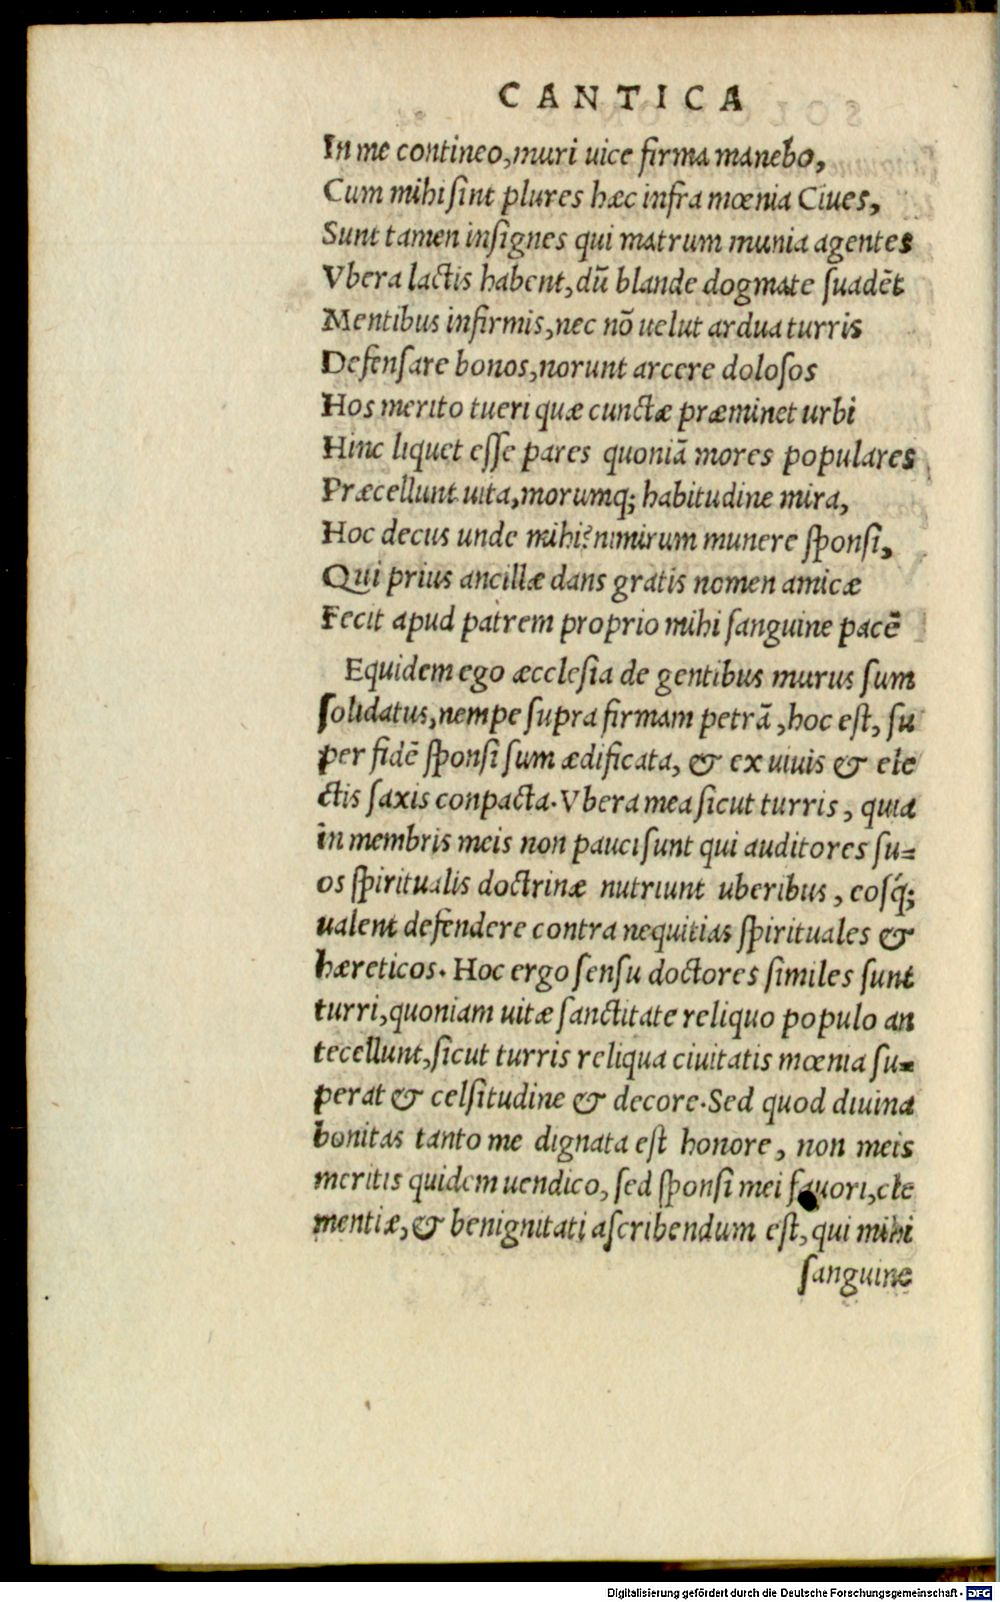 CANTICA
In me contineo, muri uice firma manebo,
Cum mihi sint plures hæc infra mœnia Ciues,
Sunt tamen insignes qui matrum munia agentes
Vbera lactis habent, dū blande dogmate suadēt
Mentibus infirmis, nec nō uelut ardua turris
Defensare bonos, norunt arcere dolosos
Hos merito tueri quæ cunctæ præminet urbi
Hinc liquet esse pares quoniā mores populares
Præcellunt uita, morumq; habitudine mira,
Hoc decus unde mihi? nimirum munere sponsi,
Qui prius ancillæ dans gratis nomen amicæ
Fecit apud patrem proprio mihi sanguine pacē
Equidem ego æcclesia de gentibus murus sum
solidatus, nempe supra firmam petrā, hoc est, su
per fidē sponsi sum ædificata, & ex uiuis & ele
ctis saxis conpacta. Vbera mea sicut turris, quia
in membris meis non pauci sunt qui auditores su=
os spiritualis doctrinæ nutriunt uberibus, eosq́;
ualent defendere contra nequitias spirituales &
hæreticos. Hoc ergo sensu doctores similes sunt
turri, quoniam uitæ sanctitate reliquo populo an
tecellunt, sicut turris reliqua ciuitatis mœnia su=
perat & celsitudine & decore. Sed quod diuina
bonitas tanto me dignata est honore, non meis
meritis quidem uendico, sed sponsi mei fauori, cle
mentiæ, & benignitati ascribendum est, qui mihi
sanguine
Digitalisierung gefördert durch die Deutsche Forschungsgemeinschaft - DFG